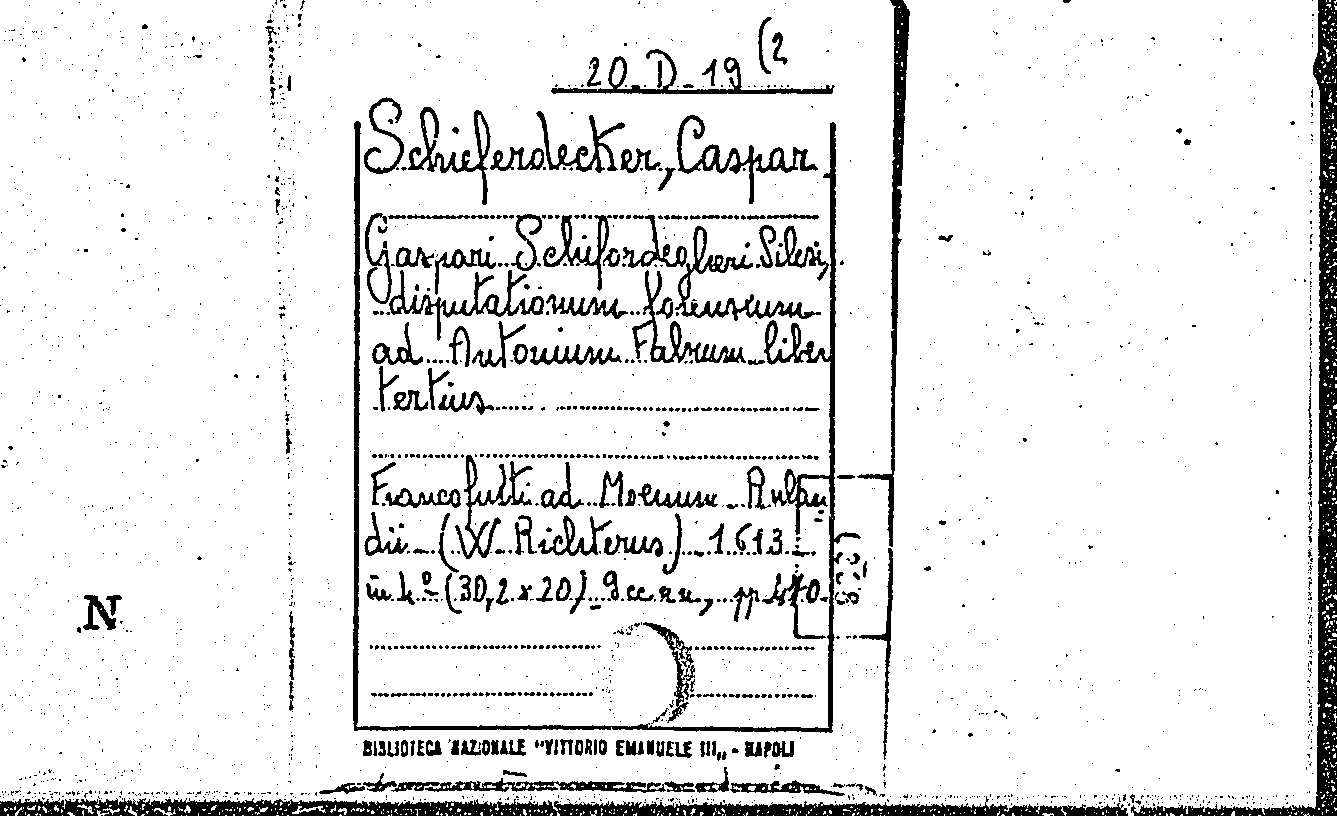 20-D-19 (2
Schieferdecker, Caspar
Gaspari Schifordegheri Silesi,
disputationum forensium
ad Antonium Fabrum liber
tertius
Francofulti ad Moenum Rulan
dii - (W. Richterus) - 1613
in 4º (30,2 x 20) - 9 cc nn, pp 470
N
BIBLIOTECA NAZIONALE "VITTORIO EMANUELE III„ - NAPOLI